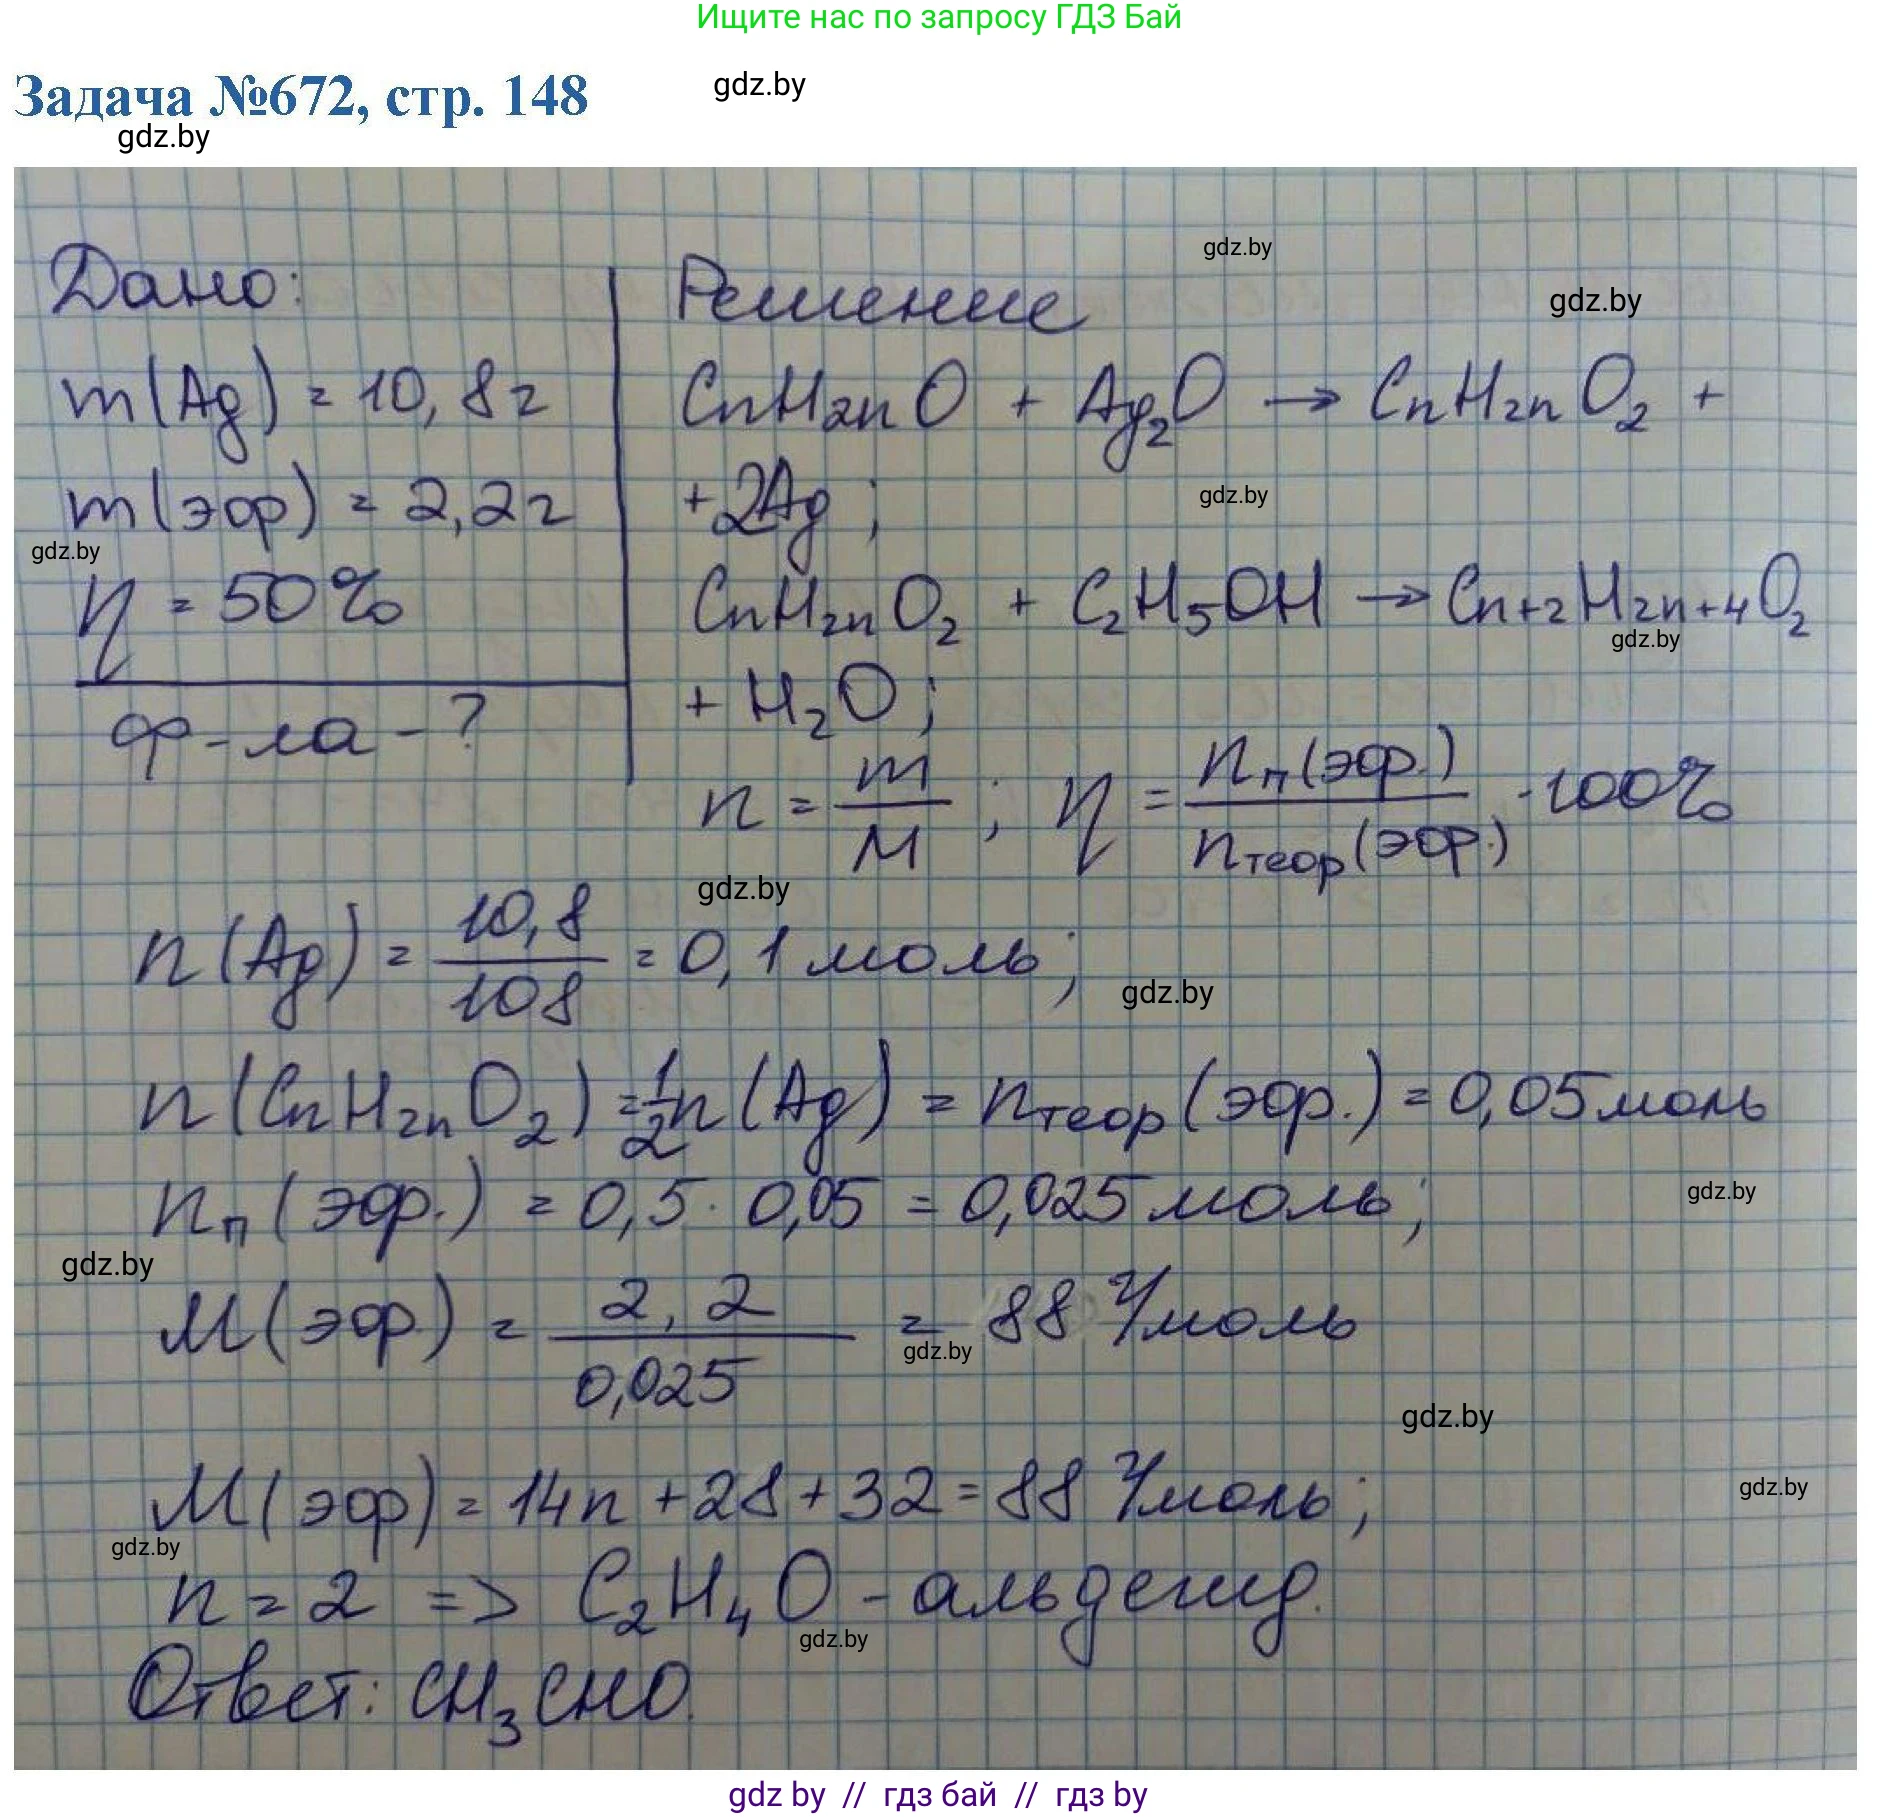 Ищите нас по запросу ГДЗ Бай
Задача №672, стр. 148
gdz.by
gdz.by
Дано:
Решение
gdz.by
gdz.by
m(Ag) = 10,8г
CnH2nO + Ag2O → CnH2nO2 +
m(эфр) = 2,2г
+2Ag;
gdz.by
gdz.by
η = 50%
CnH2nO2 + C2H5OH → Cn+2H2n+4O2
gdz.by
ф-ла - ?
+ H2O;
n = m/M; η = nп(эфр.)/nтеор(эфр.) · 100%
gdz.by
n(Ag) = 10,8/108 = 0,1 моль;
gdz.by
n(CnH2nO2) = 1/2n(Ag) = nтеор(эфр.) = 0,05 моль
nп(эфр.) = 0,5 · 0,05 = 0,025 моль;
gdz.by
gdz.by
M(эфр.) = 2,2/0,025 = 88 г/моль
gdz.by
gdz.by
M(эфр) = 14n + 28 + 32 = 88 г/моль;
gdz.by
gdz.by
n = 2 => C2H4O - альдегид.
gdz.by
Ответ: CH3CHO.
gdz by // гдз бай // гдз by